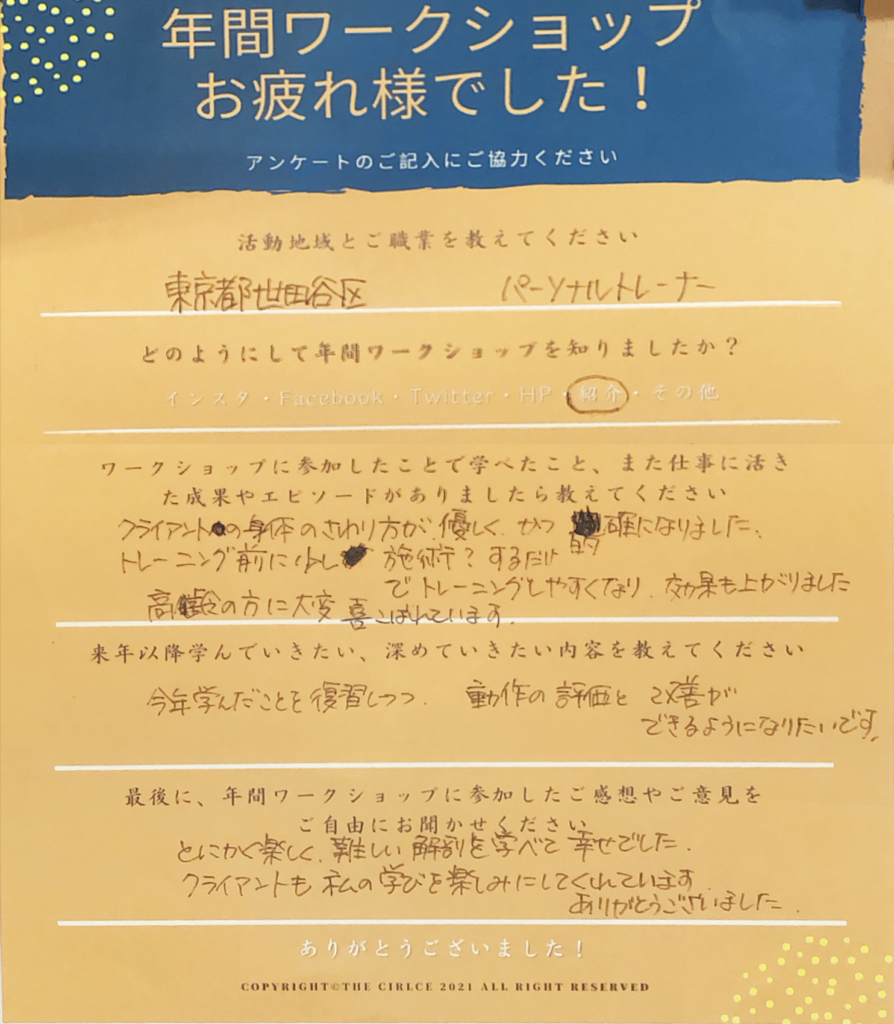 年間ワークショップ
お疲れ様でした！
アンケートのご記入にご協力ください
活動地域とご職業を教えてください
東京都世田谷区 パーソナルトレーナー
どのようにして年間ワークショップを知りましたか？
インスタ・Facebook・Twitter・HP・紹介・その他
ワークショップに参加したことで学べたこと、また仕事に活き
た成果やエピソードがありましたら教えてください
クライアントの身体のさわり方が、優しく、かつ 的確になりました、
トレーニング前に少し 施術？するだけ
でトレーニングしやすくなり、効果も上がりました
高齢の方に大変喜こばれています。
来年以降学んでいきたい、深めていきたい内容を教えてください
今年学んだことを復習しつつ、動作の評価と改善が
できるようになりたいです。
最後に、年間ワークショップに参加したご感想やご意見を
ご自由にお聞かせください
とにかく楽しく、難しい解剖を学べて幸せでした。
クライアントも私の学びを楽しみにしてくれています。
ありがとうございました。
ありがとうございました！
COPYRIGHT©THE CIRLCE 2021 ALL RIGHT RESERVED